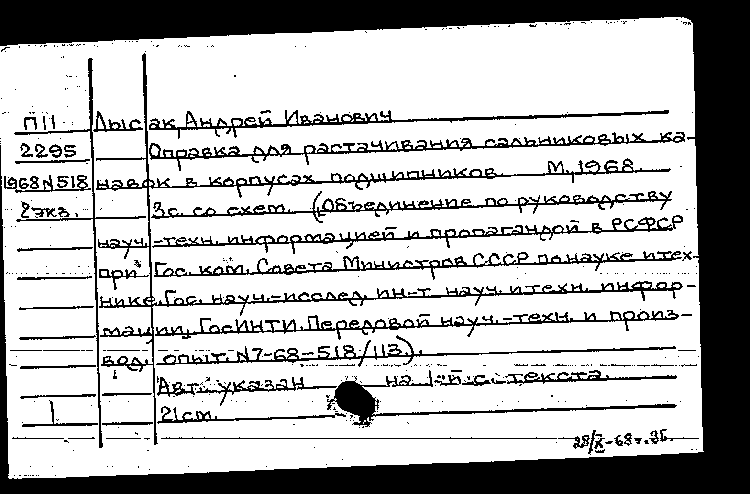 П11 Лысак, Андрей Иванович
2295 Оправка для растачивания сальниковых ка-
1968 N518 навок в корпусах подшипников. М., 1968.
2 экз. 3с. со схем. (Объединение по руководству
науч.-техн. информацией и пропагандой в РСФСР
при Гос. ком. Совета Министров СССР по науке и тех-
нике. Гос. науч.-исслед. ин-т науч. и техн. инфор-
мации. ГосИНТИ. Передовой науч.-техн. и произ-
вод. опыт. N7-68-518/113).
Авт. указан на 1-й с. текста.
1 21см.
28/X-68г.